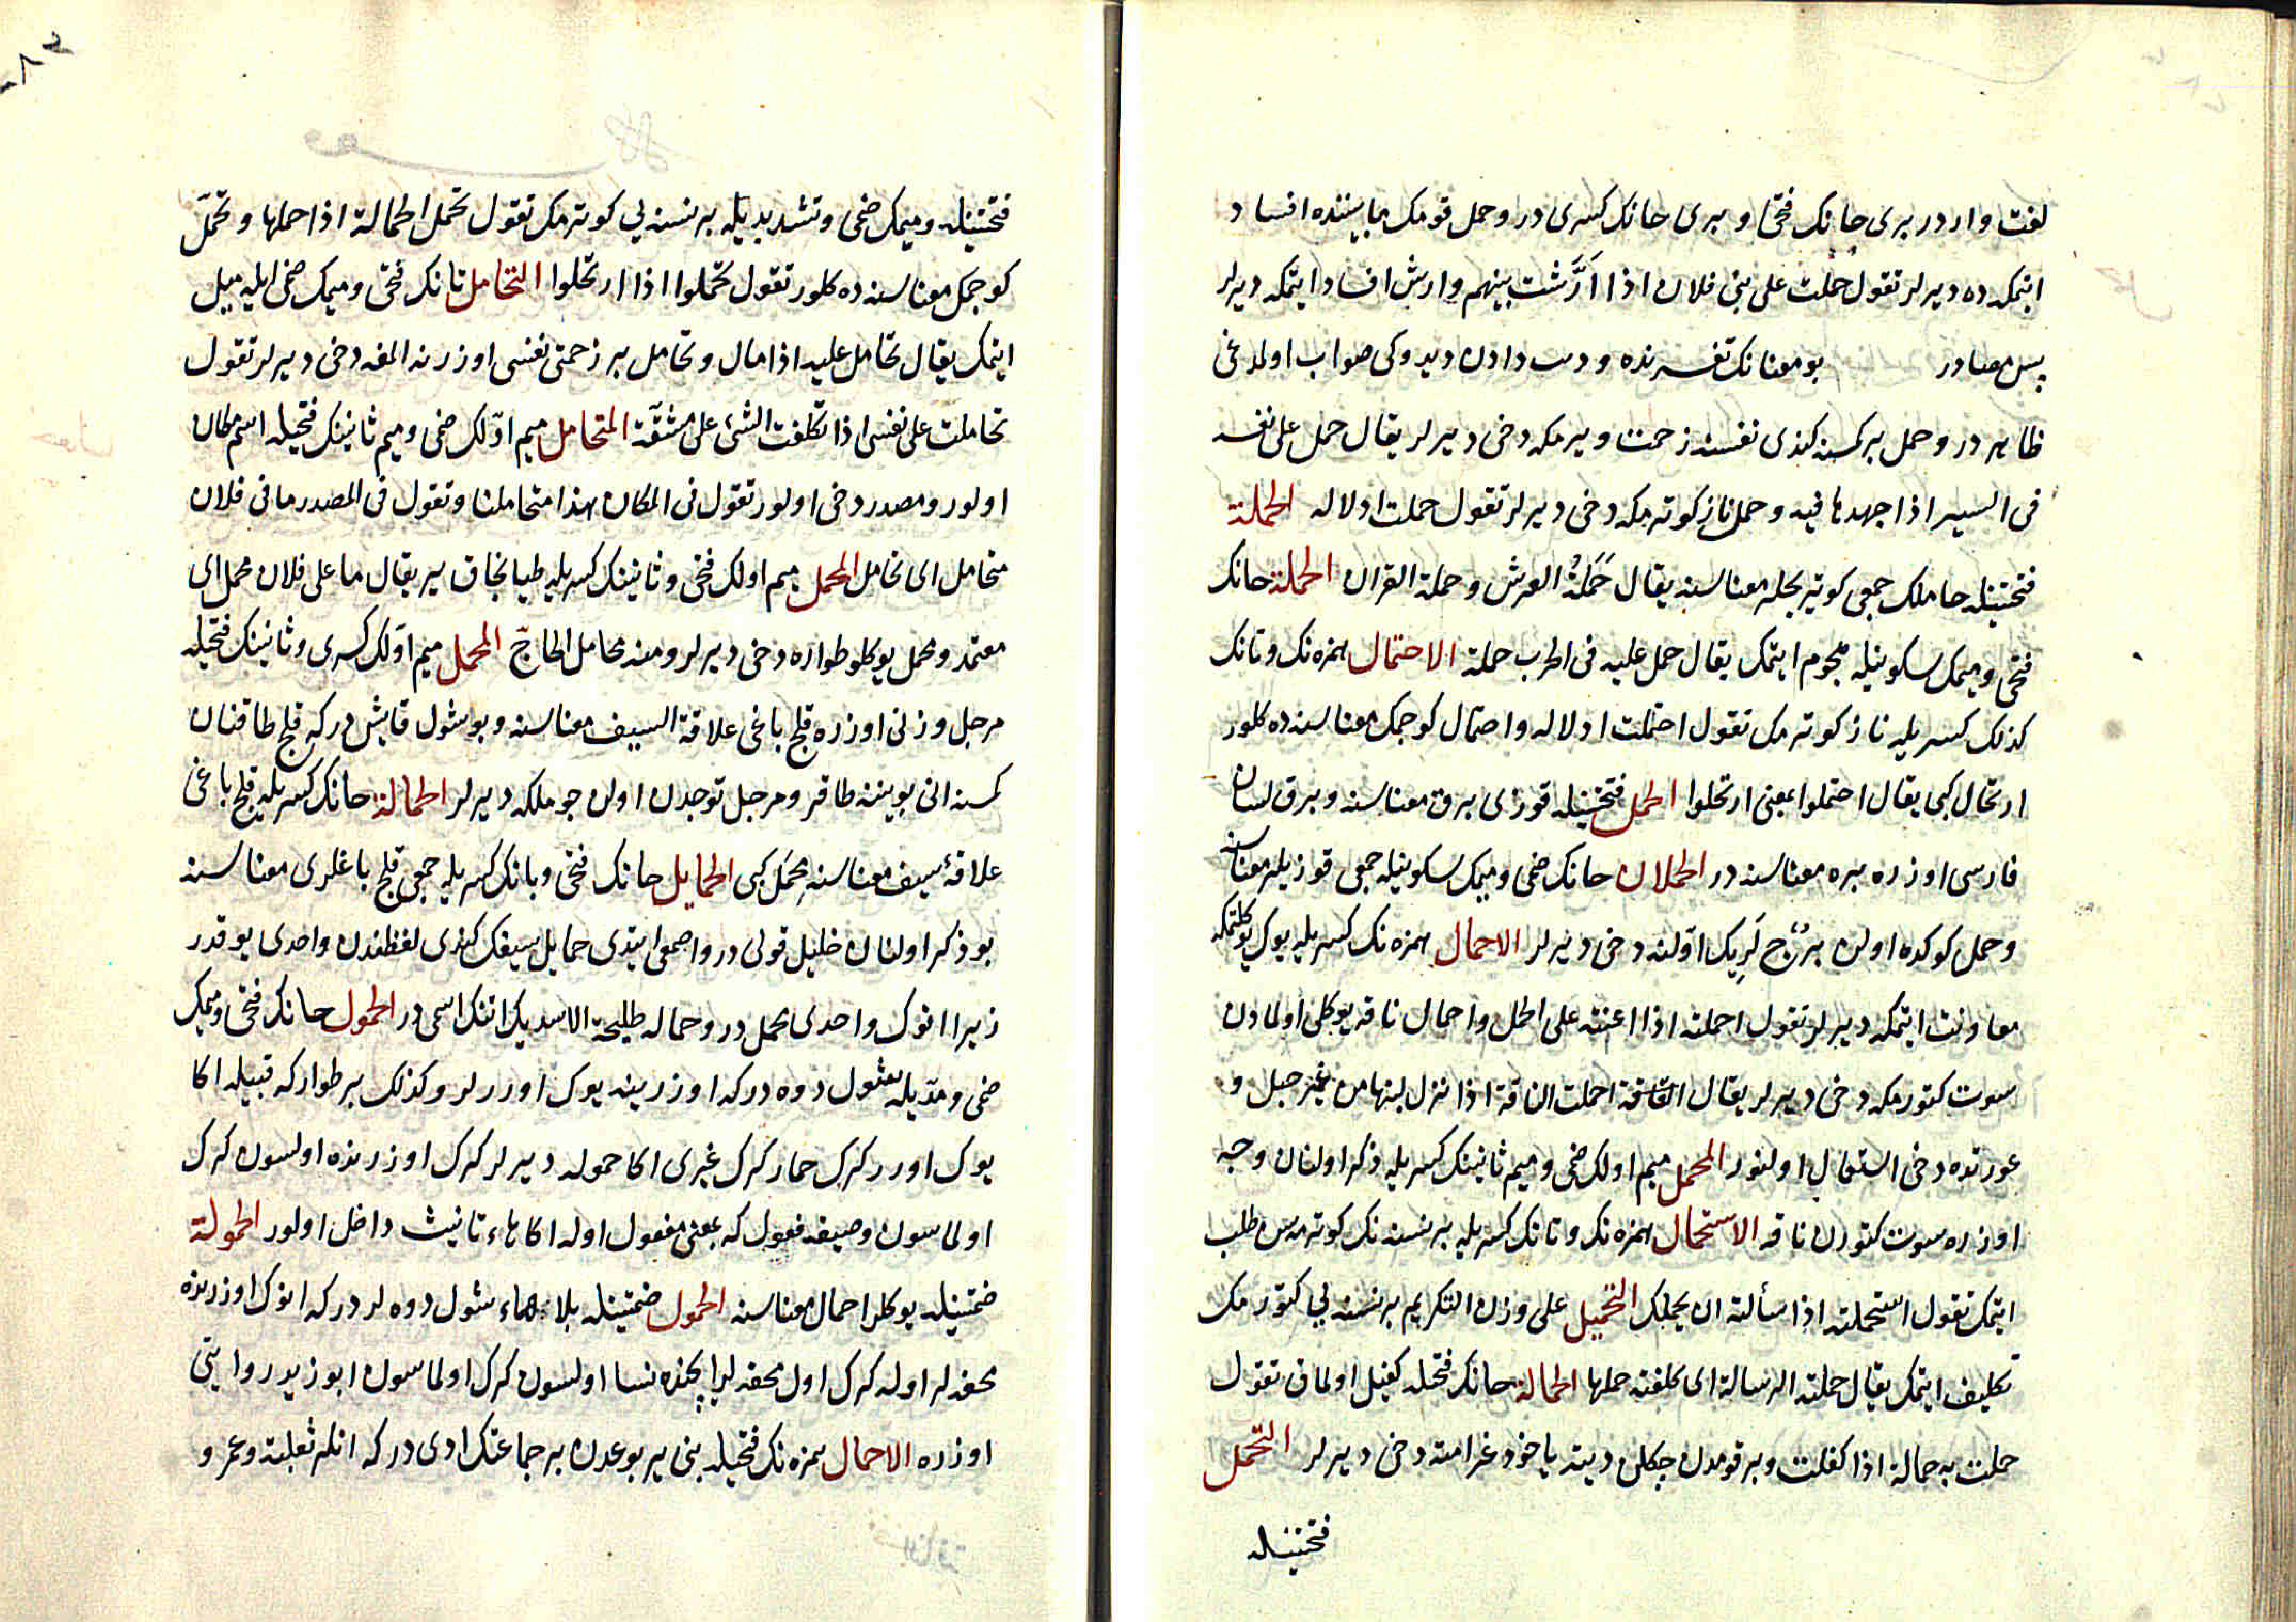 لغت واردر برى حانك فتحى وبرى حانك كسرى در وحمل قومك مابيننده افساد
ايتمكه ده ديرلر تقول حملت على بنى فلان اذا اَرَّشت بينهم وارش افساد ايتمكه ديرلر
پس مصادر بو معنانك تفسرنده ودست دادن ديدوكى صواب اولدغى
ظاهر در وحمل بر كمسنه كندى نفسنه زحمت ويرمكه دخى ديرلر يقال حمل على نفسه
فى السير اذا جهدها فيه وحمل ناز كوترمكه دخى ديرلر تقول حملت ادلاله الحملة
فتحتينله حاملك جمعى كوتريجلر معناسنه يقال حَمَلَةُ العرش وحملة القران الحملة حانك
فتحى وميمك سكونيله هجوم ايتمك يقال حمل عليه فى الحرب حملة الاحتمال همزه نك وتانك
كذلك كسريله ناز كوترمك تقول احتملت ادلاله واحتمال كوجمك معناسنده كلور
ارتحال كبى يقال احتملوا بمعنى ارتحلوا الحمل فتحتينله قوزى برق معناسنه وبرق لسان
فارسى اوزره بره معناسنه در الحملان حانك ضمى وميمك سكونيله جمعى قوزيلر معناسنه
وحمل كوكده اولان بُرْج لَرِيك اوّلنه دخى ديرلر الاحمال همزه نك كسريله يوك يوكلتمكه
معاونت ايتمكه ديرلر تقول احملته اذا اعنته على الحمل واحمال ناقه يوكلى اولمادن
سوت كتورمكه دخى ديرلر يقال احملت الناقة اذا نزل لبنها من غير حبل و
عورتده دخى استعمال اولنور المحمل ميم اولك ضمى وميم ثانينك كسريله ذكر اولنان وجه
اوزره سوت كتورن ناقه الاستحمال همزه نك وتانك كسريله بر نسنه نك كوترمه سن طلب
ايتمك تقول استحملته اذا سألته ان يحملك التحميل على وزن التكريم بر نسنه يى كتورمك
تكليف ايتمك يقال حملته الرسالة اى كلفته حملها الحمالة حانك فتحيله كفيل اولماق تقول
حملت به حمالة اذا كفلت وبر قومدن چكلن ديته ياخود غرامته دخى ديرلر التحمل
فتحتينله
فتحتينله وميمك ضمى وتشديديله بر نسنه يى كوترمك تقول تحمل الحمالة اذا حملها وتحمّل
كوجمك معناسنده كلور تقول تحملوا اذا ارتحلوا التحامل تانك فتحى وميمك ضمى ايله ميل
ايتمك يقال تحامل عليه اذا مال وتحامل بر زحمتى نفسى اوزرنه المغه دخى ديرلر تقول
تحاملت على نفسى اذا تكلفت الشئ على مشقّة المتحامل ميم اوّلك ضمى وميم ثانينك فتحيله اسم مكان
اولور ومصدر دخى اولور تقول فى المكان هذا متحاملنا وتقول فى المصدر ما فى فلان
متحامل اى تحامل المحمل ميم اولك فتحى وثانينك كسريله طيانجاق ير يقال ما على فلان محمل اى
معتمد ومحمل يوكلو طواره دخى ديرلر ومنه محامل الحاجّ المحمل ميم اوّلك كسرى وثانينك فتحيله
مرجل وزنى اوزره قلج باغى علاقة السيف معناسنه وبو شول قايش در كه قلج طاقنان
كمسنه انى بويننه طاقر ومرجل توجدن اولان جوملكه ديرلر الحمالة حانك كسريله قلج باغى
علاقهٔ سيف معناسنه مِحمَل كبى الحمايل حانك فتحى ويانك كسريله جمعى قلج باغلرى معناسنه
بو ذكر اولنان خليل قولى در واصمعى ايتدى حمايل سيفك كندى لفظندن واحدى يوقدر
زيرا انوك واحدى محمل در وحماله طليحة الاسديك اتنك اسمى در الحمول حانك فتحى وميمك
ضمى ومدّيله شول دوه در كه اوزرينه يوك اورلر وكذلك بر طوار كه قبيله اكا
يوك اورر كرك حمار كرك غيرى اكا حموله ديرلر كرك اوزرنده اولسون كرك
اولماسون وصيغهٔ فعول كه بمعنى مفعول اوله اكا هاء تانيث داخل اولور الحمولة
ضمتينله يوكلر احمال معناسنه الحمول ضمتينله بلا هاء شول دوه لر در كه انوك اوزرنده
محفه لر اوله كرك اول محفه لر ايچنده نسا اولسون كرك اولماسون ابو زيد روايتى
اوزره الاحمال همزه نك فتحيله بنى يربوعدن بر جماعتك ادى در كه انلر ثعلبة وعمرو